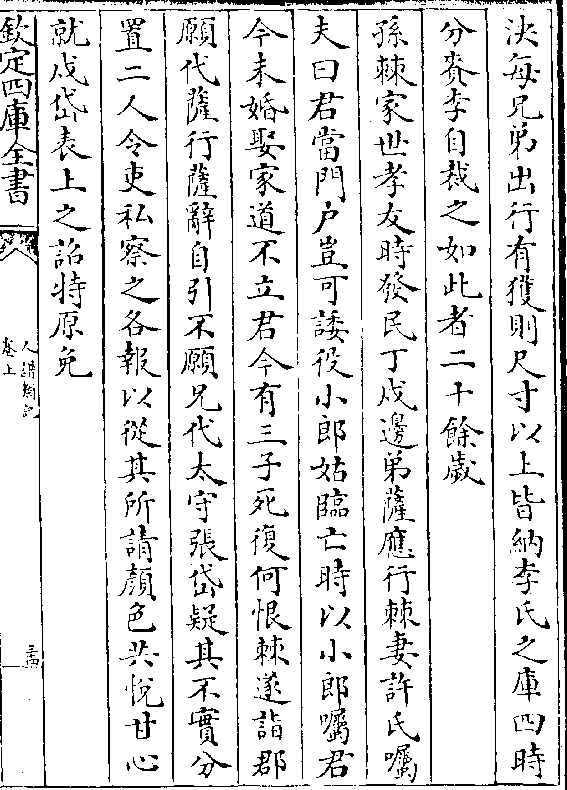 決每兄弟出行有獲則尺寸以上皆納李氏之庫四時
分賚李自裁之如此者二十餘歲
孫棘家世孝友時發民丁戍邊弟薩應行棘妻許氏囑
夫曰君當門户豈可諉役小郎姑臨亡時以小郎囑君
今未婚娶家道不立君今有三子死復何恨棘遂詣郡
願代薩行薩辭自引不願兄代太守張岱疑其不實分
置二人令吏私察之各報以從其所請顏色共悅甘心
就戍岱表上之詔特原免
欽定四庫全書
人譜類記
卷上
三四